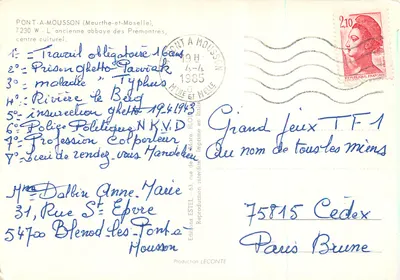 PONT-A-MOUSSON (Meurthe-et-Moselle)
7230 W - L'ancienne abbaye des Prémontrés,
centre culturel.
1°= Travail obligatoire 16 ans
2°= Prison ghetto Pawiak
3°= maladie " Typhus
4°= Rivière le Bug
5°= insurection ghetto 19.4.1943
6°= Police Politique N.K.V.D
7°= Profession Colporteur
8°= Lieu de rendez-vous
Mme Dalbin Anne-Marie
31, Rue St Epvre
54700 Blenod les Pont-a
Mousson
PONT A MOUSSON
4-4
1985
MRTHE ET MOSELLE
2,10
Grand Jeux TF1
Au nom de tous les miens
75815 Cédex
Paris Brune
Editions ESTEL
Production LECONTE